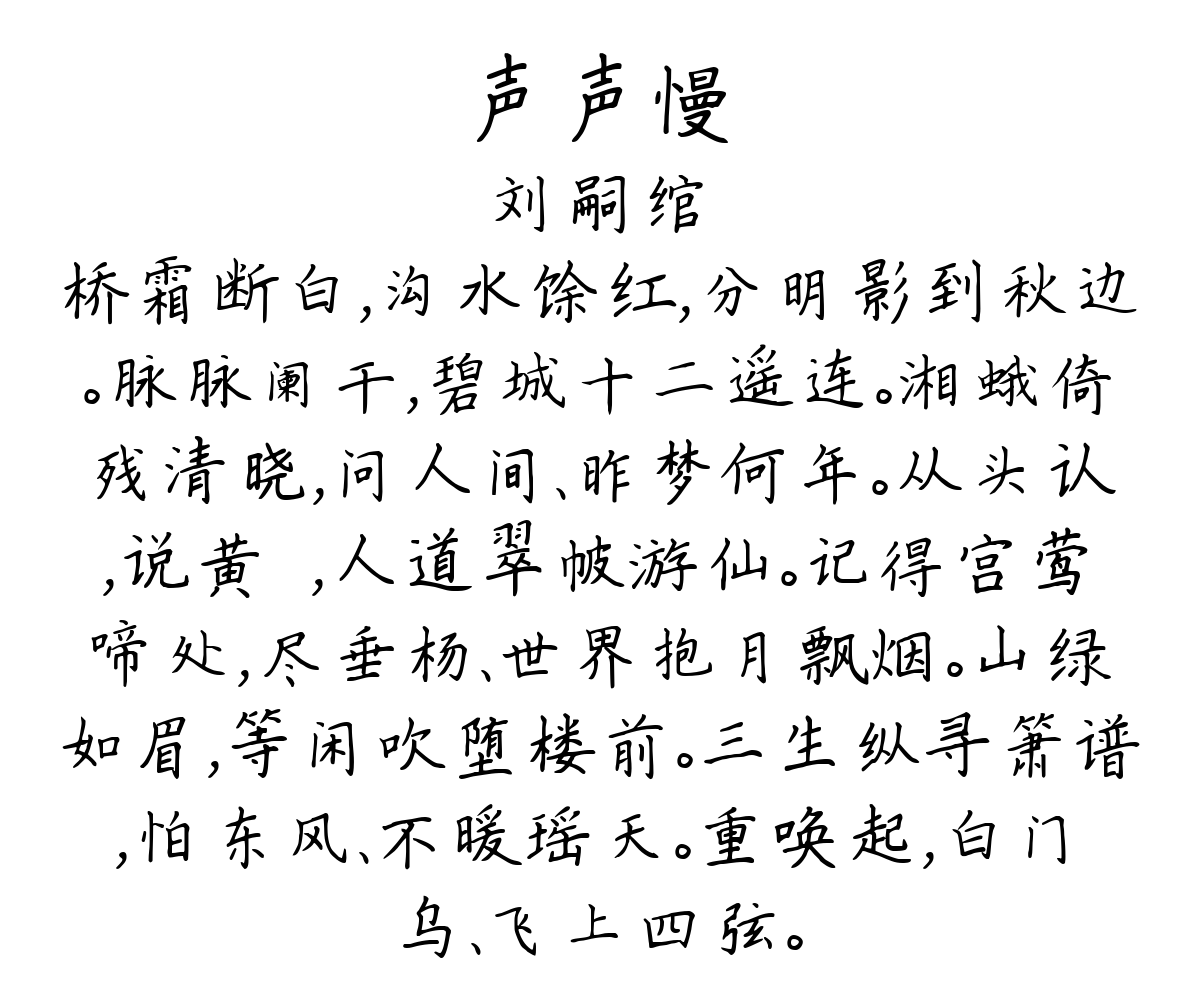 声声慢
刘嗣绾
桥霜断白,沟水馀红,分明影到秋边
。脉脉阑干,碧城十二遥连。湘蛾倚
残清晓,问人间、昨梦何年。从头认
,说黄 ,人道翠帔游仙。记得宫莺
啼处,尽垂杨、世界抱月飘烟。山绿
如眉,等闲吹堕楼前。三生纵寻箫谱
,怕东风、不暖瑶天。重唤起,白门
乌、飞上四弦。